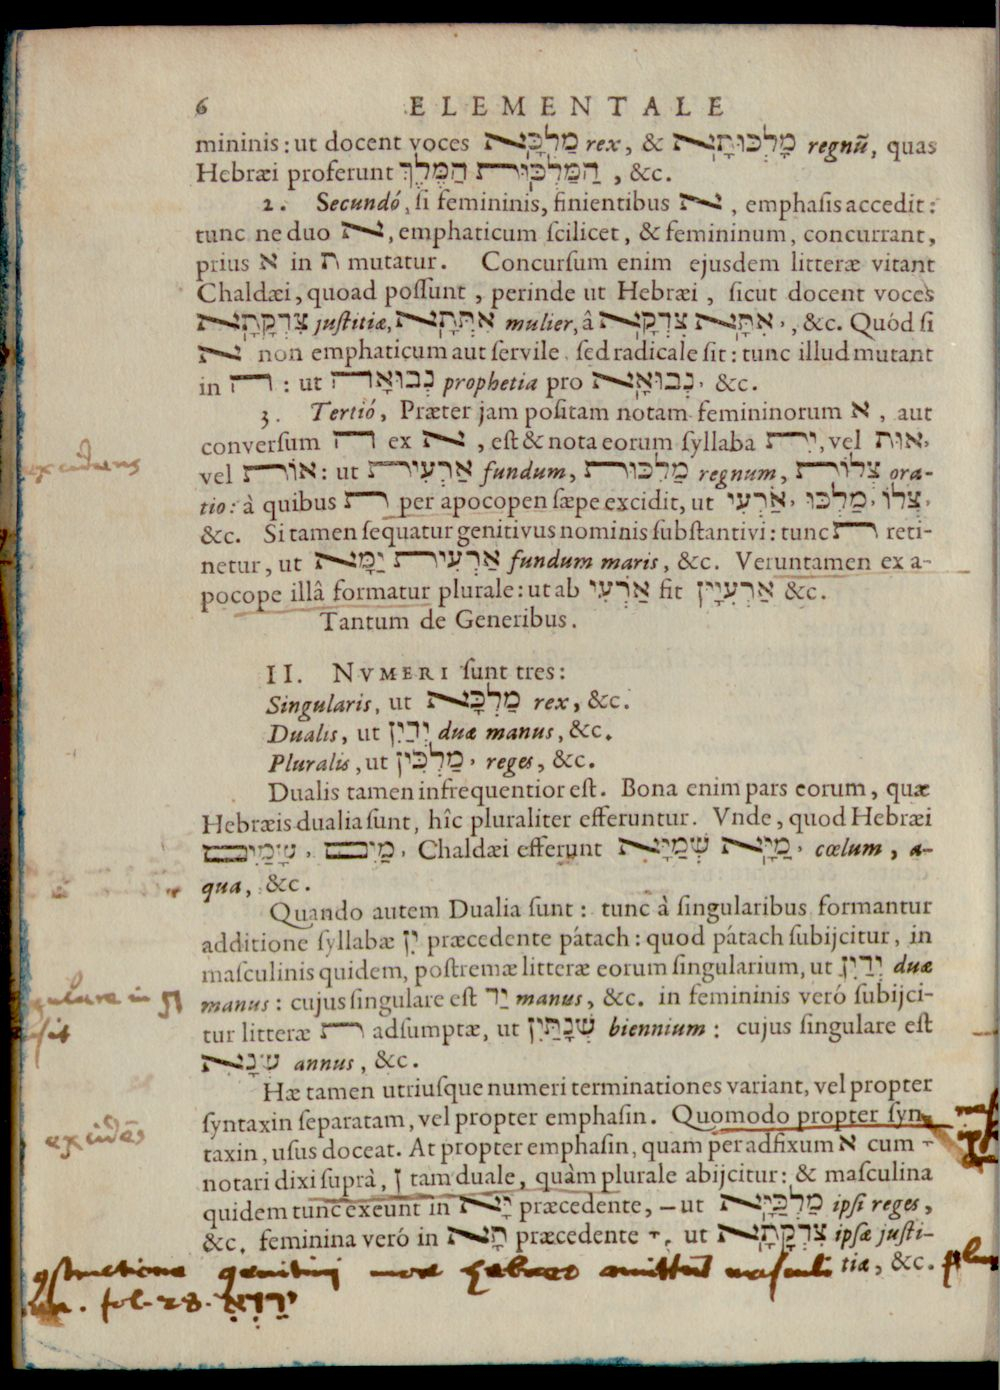 6 ELEMENTALE
mininis: ut docent voces מַלְכָּא rex, & מָלְכוּתָא regnũ, quas
Hebræi proferunt הַמַּלְכוּת הַמֶּלֶךְ, &c.
2. Secundó, ſi femininis, finientibus א, emphaſis accedit:
tunc ne duo א, emphaticum ſcilicet, & femininum, concurrant,
prius א in ת mutatur. Concurſum enim ejusdem litteræ vitant
Chaldæi, quoad poſſunt, perinde ut Hebræi, ſicut docent voces
צִדְקָתָא juſtitiæ, אִתְּתָא mulier, â צִדְקָא אִתָּא, &c. Quód ſi
א non emphaticum aut ſervile ſed radicale ſit: tunc illud mutant
in ה: ut נְבוּאָה prophetia pro נְבוּאָא, &c.
3. Tertió, Præter jam poſitam notam femininorum א, aut
converſum ה ex א, eſt & nota eorum ſyllaba ית, vel אוּת,
vel אוֹת: ut אַרְעִית fundum, מַלְכוּת regnum, צְלוֹת ora-
tio: à quibus ת per apocopen ſæpe excidit, ut אַרְעִי, מַלְכוּ, צְלוֹ,
&c. Si tamen ſequatur genitivus nominis ſubſtantivi: tunc ת reti-
netur, ut אַרְעִית יַמָּא fundum maris, &c. Veruntamen ex a-
pocope illâ formatur plurale: ut ab אַרְעִי fit אַרְעִיָן &c.
Tantum de Generibus.
II. NVMERI ſunt tres:
Singularis, ut מַלְכָּא rex, &c.
Dualis, ut יְדַיִן duæ manus, &c.
Pluralis, ut מַלְכִּין, reges, &c.
Dualis tamen infrequentior eſt. Bona enim pars eorum, quæ
Hebræis dualia ſunt, hîc pluraliter efferuntur. Vnde, quod Hebræi
מַיִם, שָׁמַיִם, Chaldæi efferunt מַיָּא שְׁמַיָּא, cœlum, a-
qua, &c.
Quando autem Dualia ſunt: tunc à ſingularibus formantur
additione ſyllabæ יִן præcedente pátach: quod pátach ſubijcitur, in
maſculinis quidem, poſtremæ litteræ eorum ſingularium, ut יְדַיִן duæ
manus: cujus ſingulare eſt יַד manus, &c. in femininis veró ſubijci-
tur litteræ ת adſumptæ, ut שְׁנָתַיִן biennium: cujus ſingulare eſt
שְׁנָא annus, &c.
Hæ tamen utriuſque numeri terminationes variant, vel propter
ſyntaxin ſeparatam, vel propter emphaſin. Quomodo propter ſyn-
taxin, uſus doceat. At propter emphaſin, quam per adfixum א cum ָ
notari dixi ſuprà, ן tam duale, quàm plurale abijcitur: & maſculina
quidem tunc exeunt in יָא præcedente ַ ut מַלְכַיָּא ipſi reges,
&c. feminina veró in תָא præcedente ָ, ut צִדְקָתָא ipſæ juſti-
tiæ, &c.
genitivi more hebræo
fol. 28.